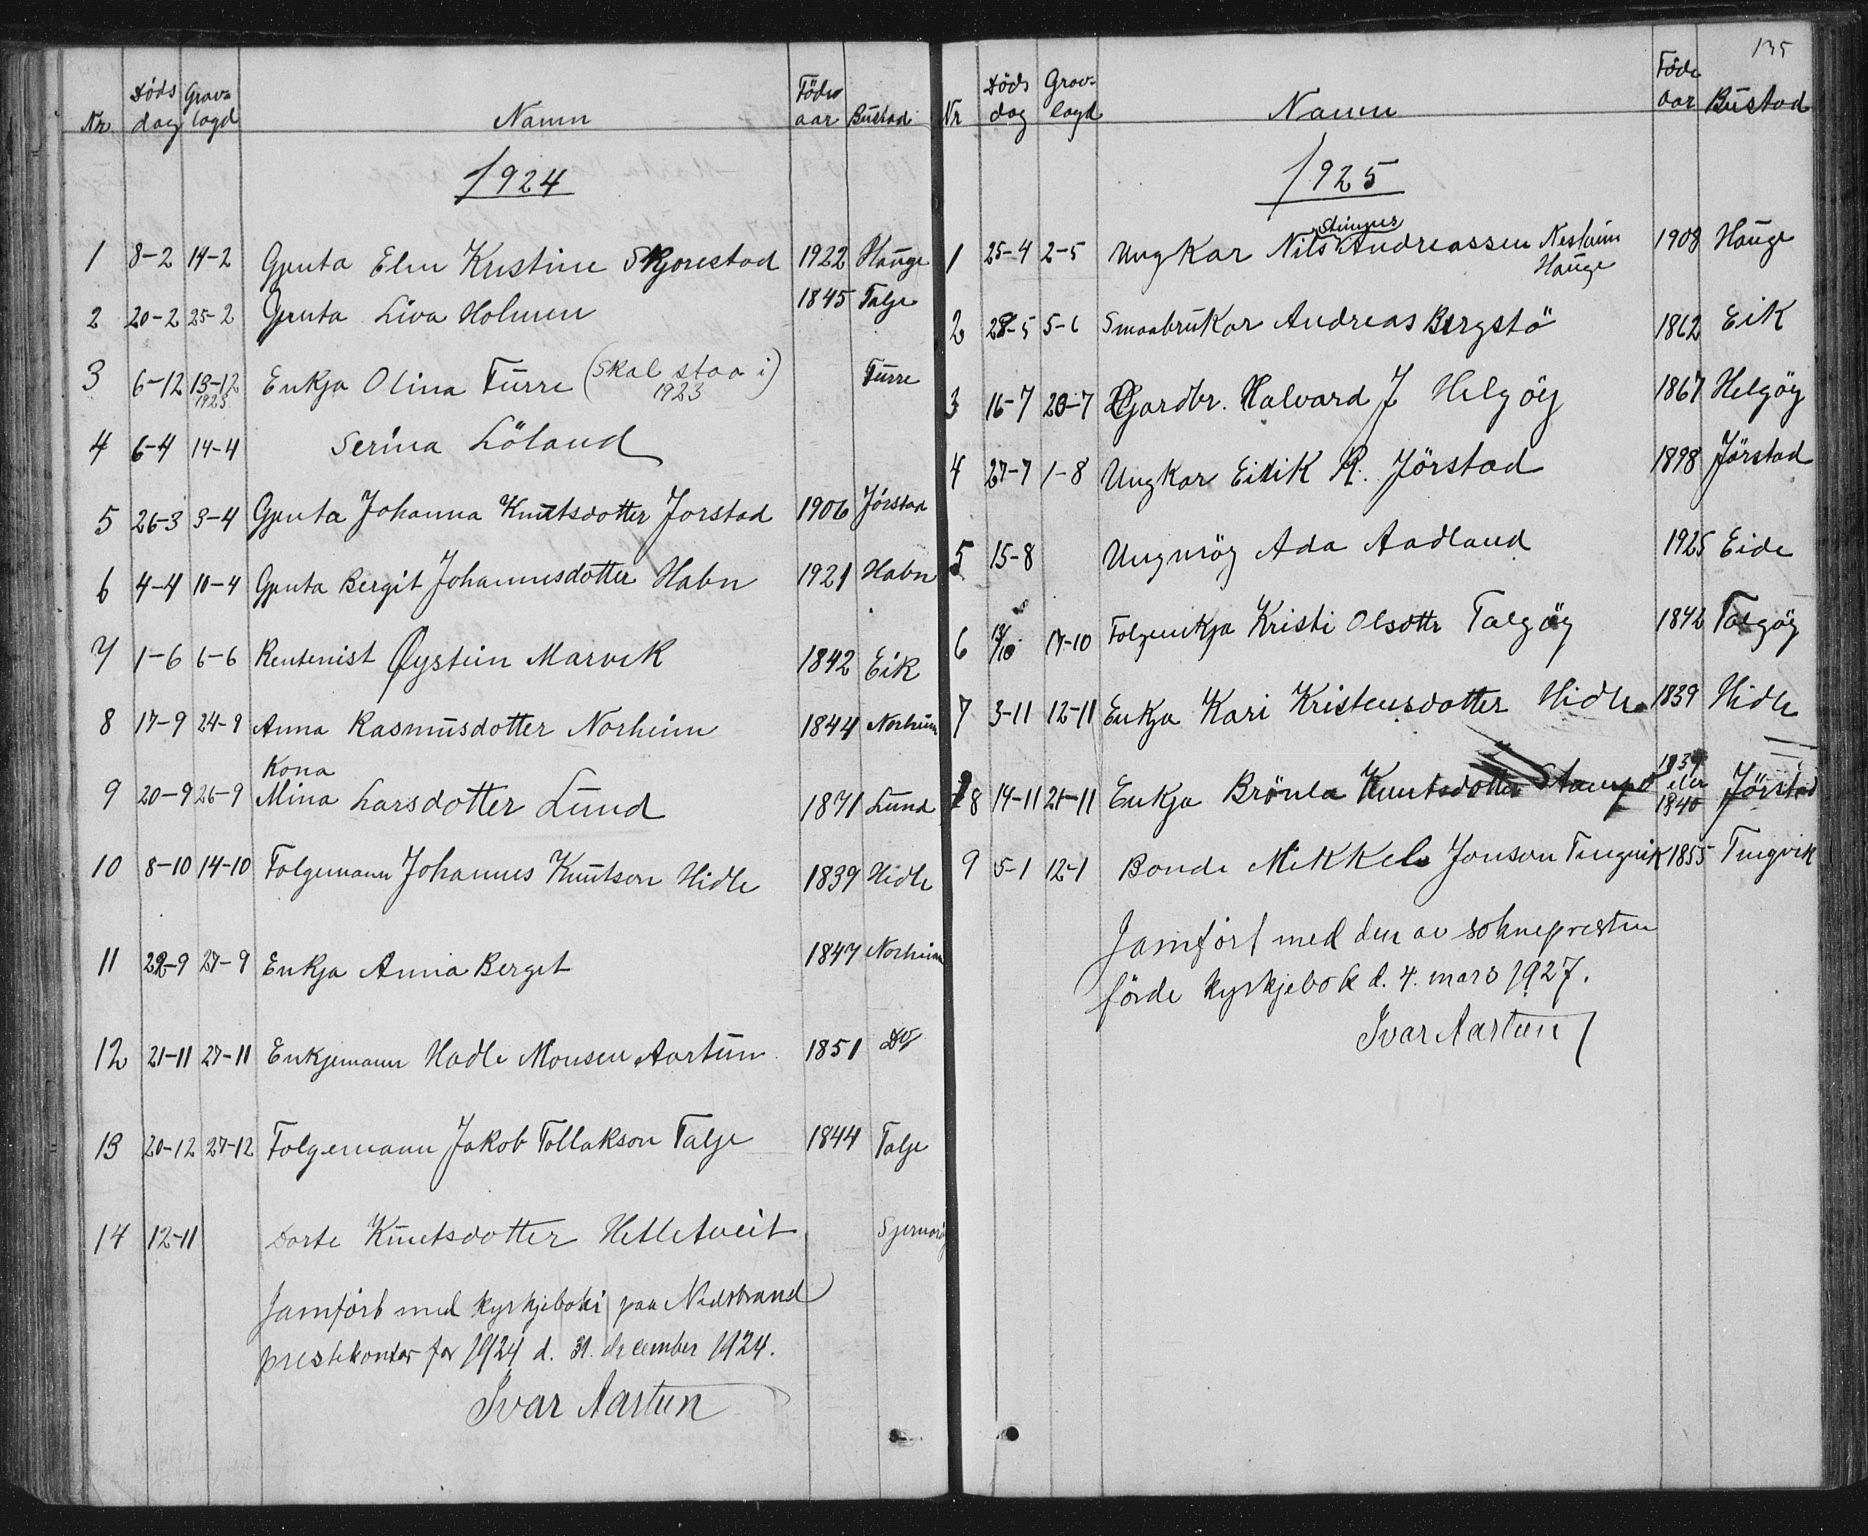 Nr Døds dag Grav- lagd Namn Föde aar Bustad
1924
1 8-2 14-2 Gjenta Elen Kristine Skjorestad 1922 Hauge
2 20-2 25-2 Gjenta Liva Holmen 1845 Talje
3 6-12 13-12 1923 Enkja Olina Turre (Skal staa i 1923) Turre
4 6-4 14-4 Serina Löland
5 26-3 3-4 Gjenta Johanna Knutsdotter Jorstad 1906 Jórstad
6 4-4 10-4 Gjenta Bergit Johannesdotter Habn 1921 Habn
7 1-6 6-6 Rentenist Øystein Marvik 1842 Eik
8 17-9 24-9 Anna Rasmusdotter Norheim 1844 Norheim
Kona
9 20-9 26-9 Mina Larsdotter Lund 1871 Lund
10 8-10 14-10 Folgemann Johannes Knutson Hidle 1839 Hidle
11 22-9 27-9 Enkja Anna Berget 1847 Norheim
12 21-11 27-11 Enkjemann Hadle Monsen Aartun 1851
13 20-12 27-12 Folgemann Jakob Tollakson Talje 1844 Talje
14 12-11 Dorte Knutsdotter Hetletveit Sjernarøy
Jamført med kyrkjeboki paa Nedstrand
prestekontor for 1924 d. 31. december 1924.
Ivar Aartun
135
Nr Döds dag Grav- lagd Namn Föde aar Bustad
1925
1 25-4 2-5 Ungkar Nils Andreassen Nesheim Hauge 1908 Hauge
2 28-5 5-6 Smaabrukar Andreas Bergstö 1862 Eik
3 16-7 20-7 Gardbr. Halvard J Helgöy 1867 Helgöy
4 27-7 1-8 Ungkar Eirik R. Jörstad 1898 Jörstad
5 15-8 Ungmöy Ada Aadland 1925 Eide
6 17-10 Folgeenkja Kristi Olsdotter Talgöy 1842 Talgöy
7 3-11 12-11 Enkja Kari Kristensdotter Hidle 1839 Hidle
8 14-11 21-11 Enkja Brönla Knutsdotter 1839 eler 1840 Jörstad
9 5-1 12-1 Bonde Mikkel Jonson Tingvik 1855 Tingvik
Jamført med den av sokneprestен
førde kyrkjebok d. 4. mars 1927.
Ivar Aartun